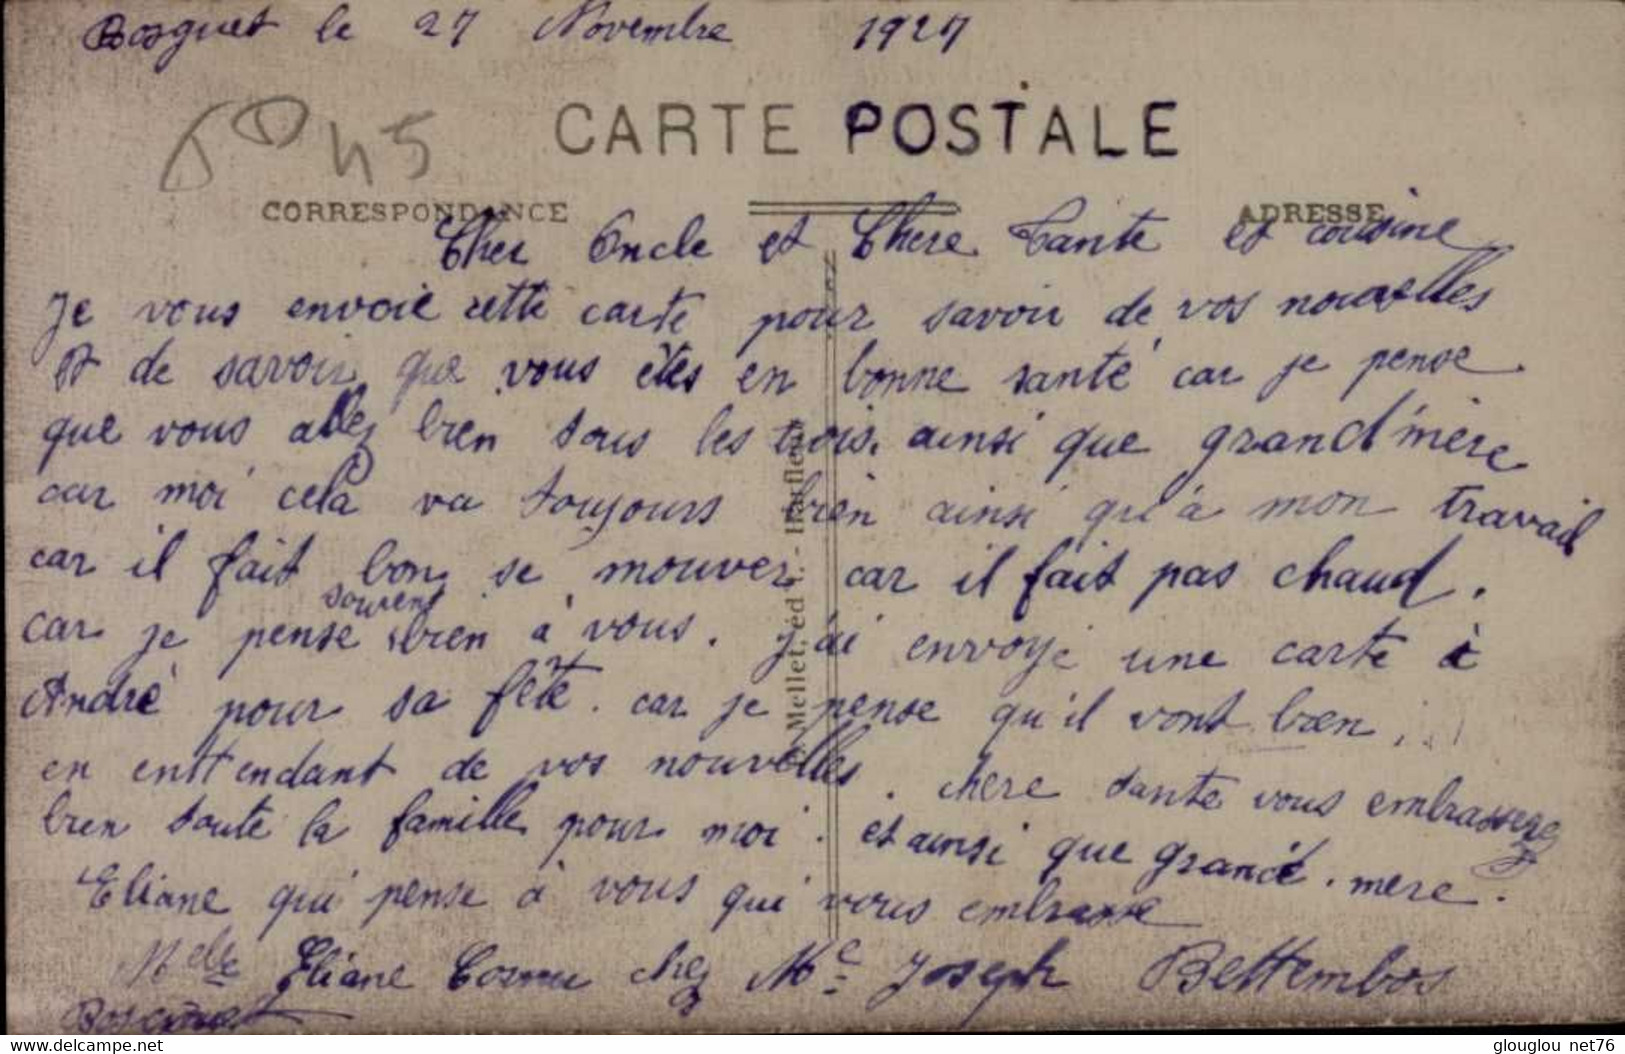 Bosguet le 27 Novembre 1927
CARTE POSTALE
CORRESPONDANCE
ADRESSE
Cher Oncle et Chere Tante et cousine
Je vous envoie cette carte pour savoir de vos nouvelles
et de savoir que vous êtes en bonne santé car je pense
que vous allez bien tous les trois. ainsi que grand'mère
car moi cela va toujours bien ainsi qu'à mon travail
car il fait bon se mouver car il fait pas chaud.
souvent
car je pense bien à vous. j'ai envoyé une carte à
André pour sa fête. car je pense qu'il vont bien.
en enttendant de vos nouvelles. chere tante vous embrasserez
bien toute la famille pour moi. et ainsi que grand. mere.
Eliane qui pense à vous qui vous embrasse
Melle Eliane chez Me Joseph Bettembos
Bosguet
Mellet, éd. - Harfleur
glouglou net76
www.delcampe.net